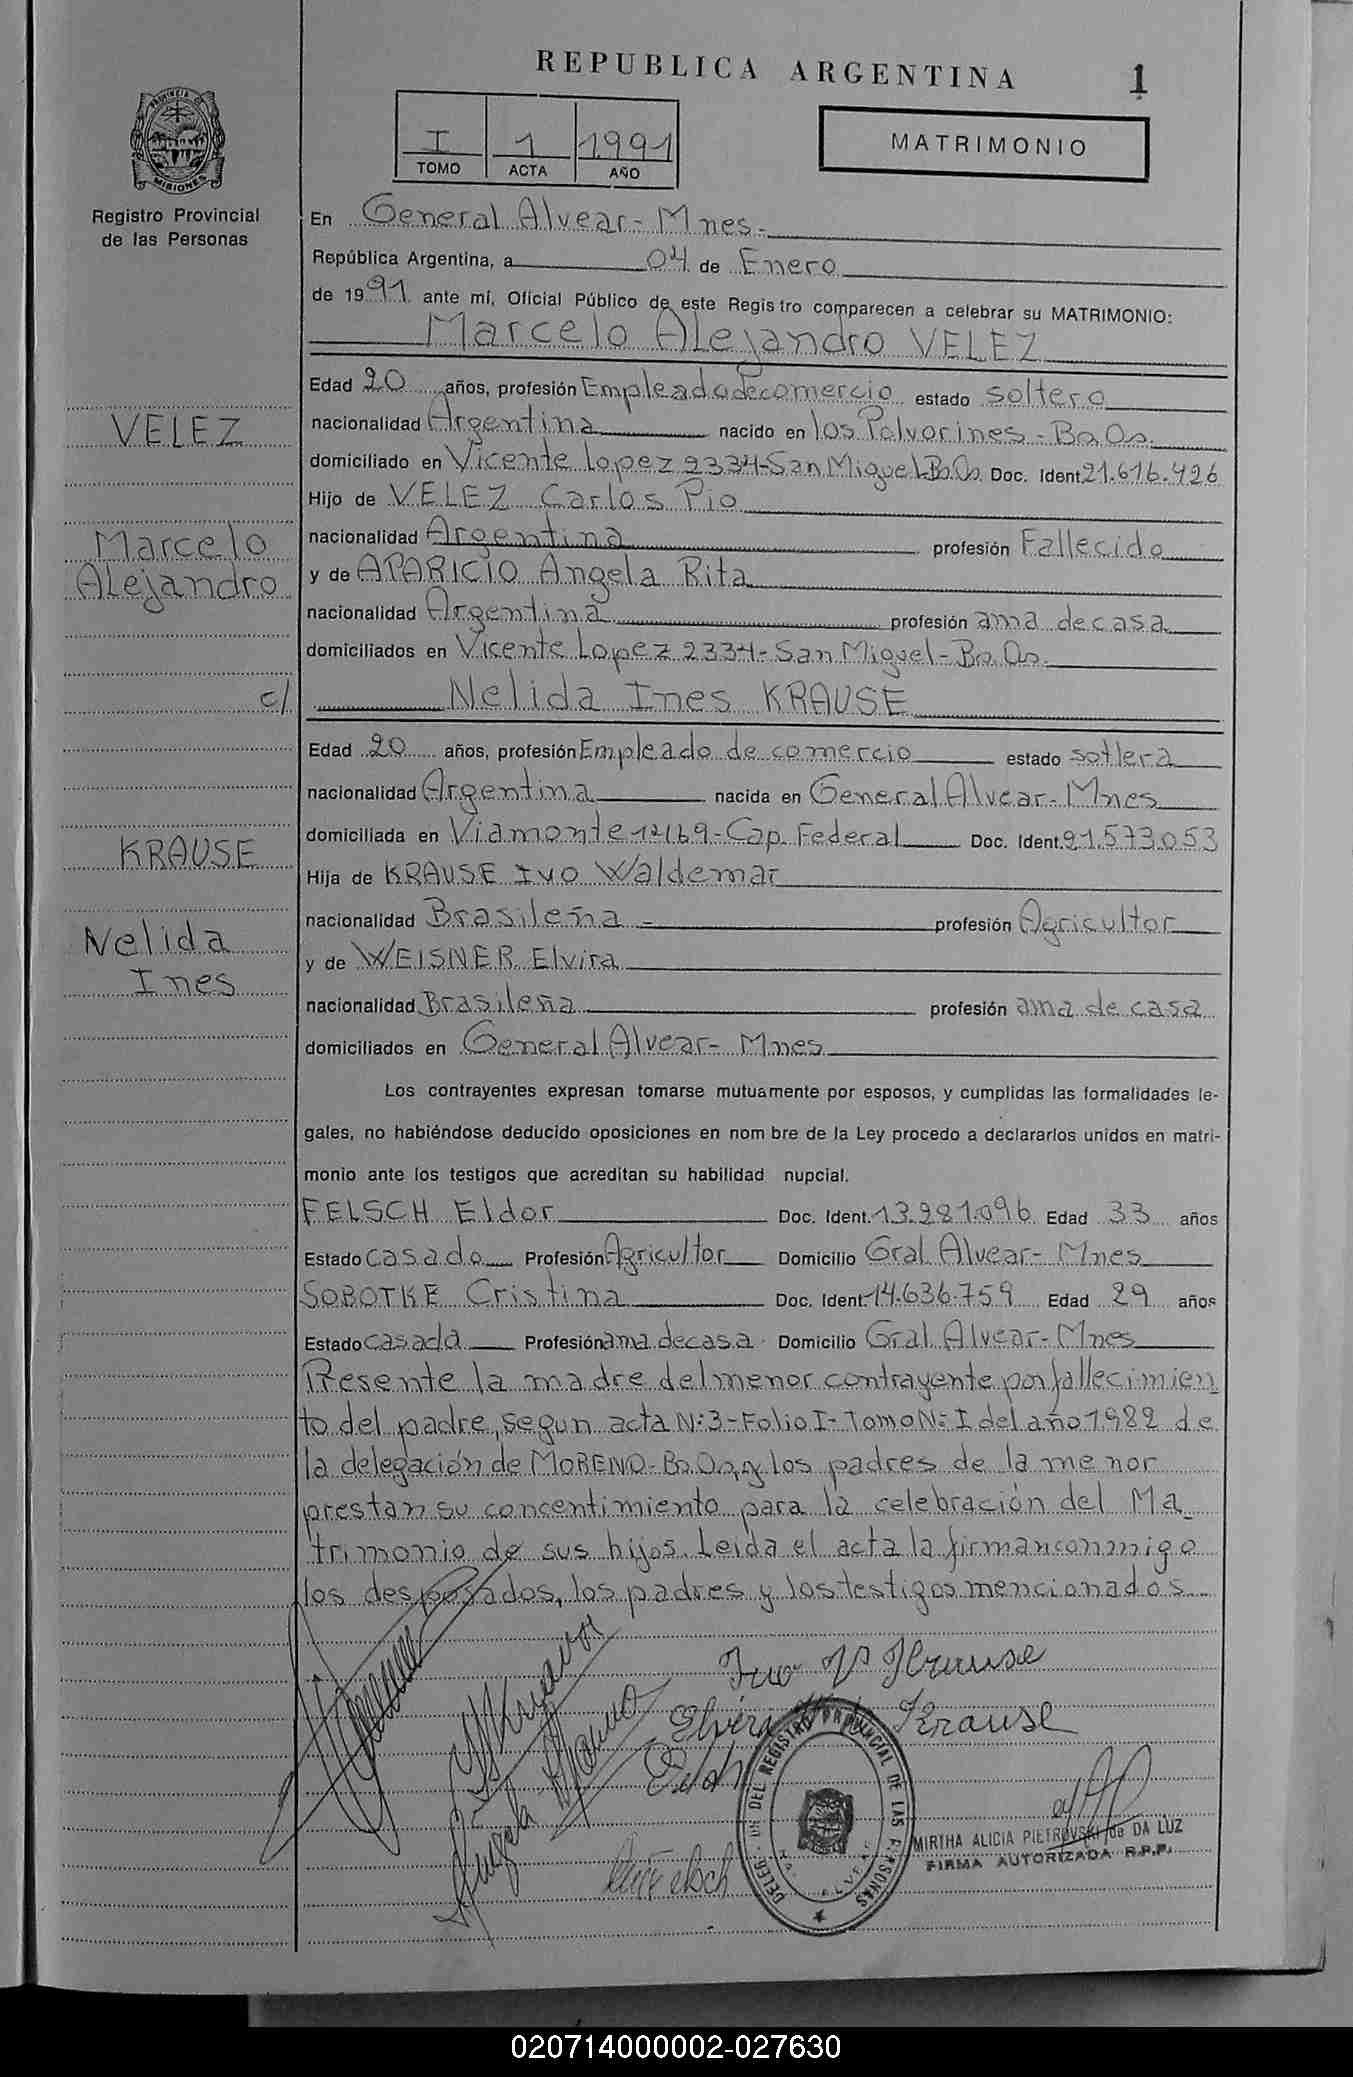 REPUBLICA ARGENTINA
1
I 1 1991
TOMO ACTA AÑO
MATRIMONIO
PROVINCIA DE MISIONES
Registro Provincial
de las Personas
En General Alvear- Mnes.-
República Argentina, a 04 de Enero
de 1991 ante mí, Oficial Público de este Registro comparecen a celebrar su MATRIMONIO:
Marcelo Alejandro VELEZ
Edad 20 años, profesión Empleado de comercio estado soltero
VELEZ
nacionalidad Argentina nacido en los Polvorines - Bs.As.
domiciliado en Vicente Lopez 2334-San Miguel-Bs.As. Doc. Ident. 21.616.426
Hijo de VELEZ Carlos Pio
Marcelo
Alejandro
nacionalidad Argentina profesión Fallecido
y de APARICIO Angela Rita
nacionalidad Argentina profesión ama de casa
domiciliados en Vicente Lopez 2334- San Miguel- Bs.As.
c/
Nelida Ines KRAUSE
Edad 20 años, profesión Empleado de comercio estado sotlera
nacionalidad Argentina nacida en General Alvear- Mnes
domiciliada en Viamonte 12169- Cap. Federal Doc. Ident. 21.573.053
KRAUSE
Hija de KRAUSE Ivo Waldemar
nacionalidad Brasileña - profesión Agricultor
Nelida
Ines
y de WEISNER Elvira
nacionalidad Brasileña profesión ama de casa
domiciliados en General Alvear- Mnes
Los contrayentes expresan tomarse mutuamente por esposos, y cumplidas las formalidades le-
gales, no habiéndose deducido oposiciones en nom bre de la Ley procedo a declararlos unidos en matri-
monio ante los testigos que acreditan su habilidad nupcial.
FELSCH Eldor Doc. Ident. 13.281.096 Edad 33 años
Estado casado Profesión Agricultor Domicilio Gral. Alvear- Mnes
SOBOTKE Cristina Doc. Ident. 14.636.759 Edad 29 años
Estado casada Profesión ama de casa Domicilio Gral. Alvear- Mnes
Presente la madre del menor contrayente por fallecimien
to del padre, segun acta N:3-Folio I- Tomo N: I del año 1982 de
la delegación de MORENO-Bs.As, y los padres de la menor
prestan su concentimiento para la celebración del Ma_
trimonio de sus hijos. Leida el acta la firman conmigo
los desposados, los padres y los testigos mencionados
Ivo W Krause
Elvira Krause
DELEG. DEL REGISTRO PROVINCIAL DE LAS PERSONAS
MIRTHA ALICIA PIETROVSKI de DA LUZ
FIRMA AUTORIZADA R.P.P.
020714000002-027630